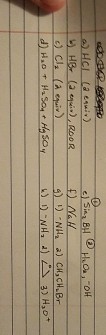 a) HCl (2 equiv)
b) HBr (2 equiv), ROOR
c) Cl2 (2 equiv)
d) H2O + H2SO4 + HgSO4
e) ① Sia2BH ② H2O2, -OH
f) NaH
g) 1) -NH2 2) CH3CH2Br
h) 1) -NH2 2) 3) H3O+